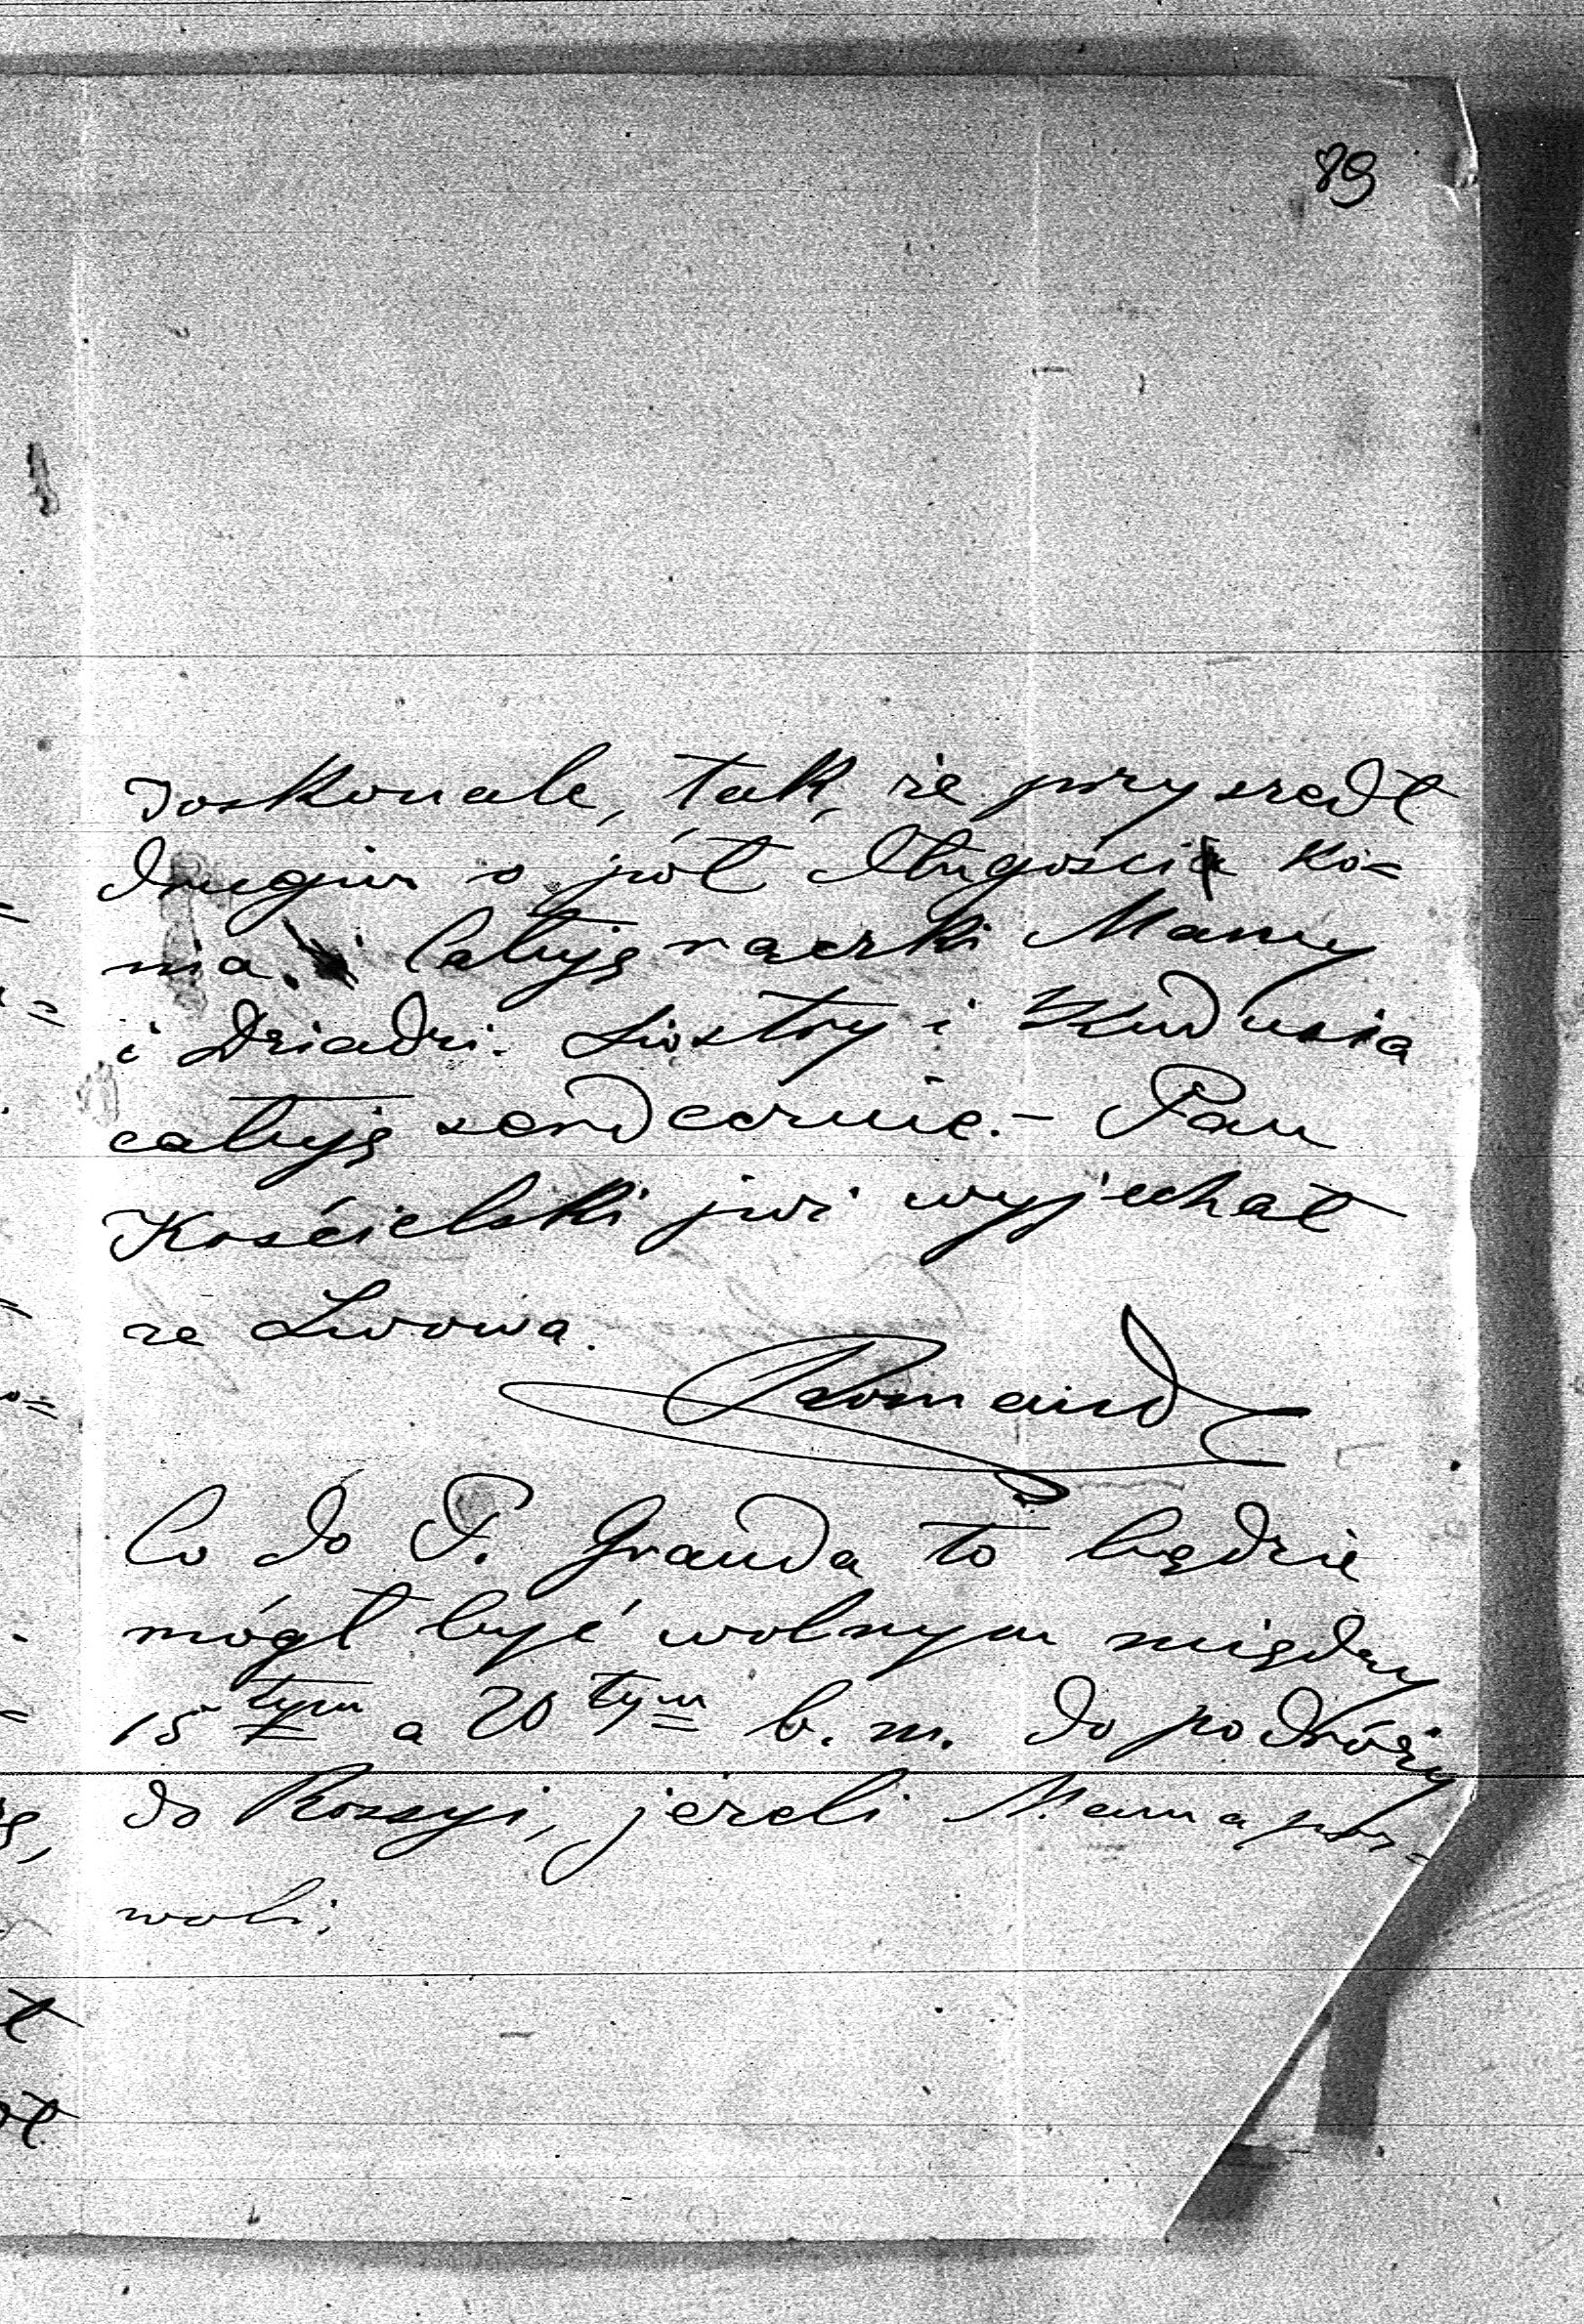 89
doskonale, tak, że przyszedł
drugim o pół długości ko=
nia. Całuję rączki Mamy
i Dziadzi. Siostry i Kudusia
całuję serdecznie. – Pan
Kościelski już wyjechał
ze Lwowa.
Romand
Co do P. Granda to będzie
mógł być wolnym między
15 tym a 20 tym b. m. do podróży
do Rossyi, jeżeli Mama poz=
woli.